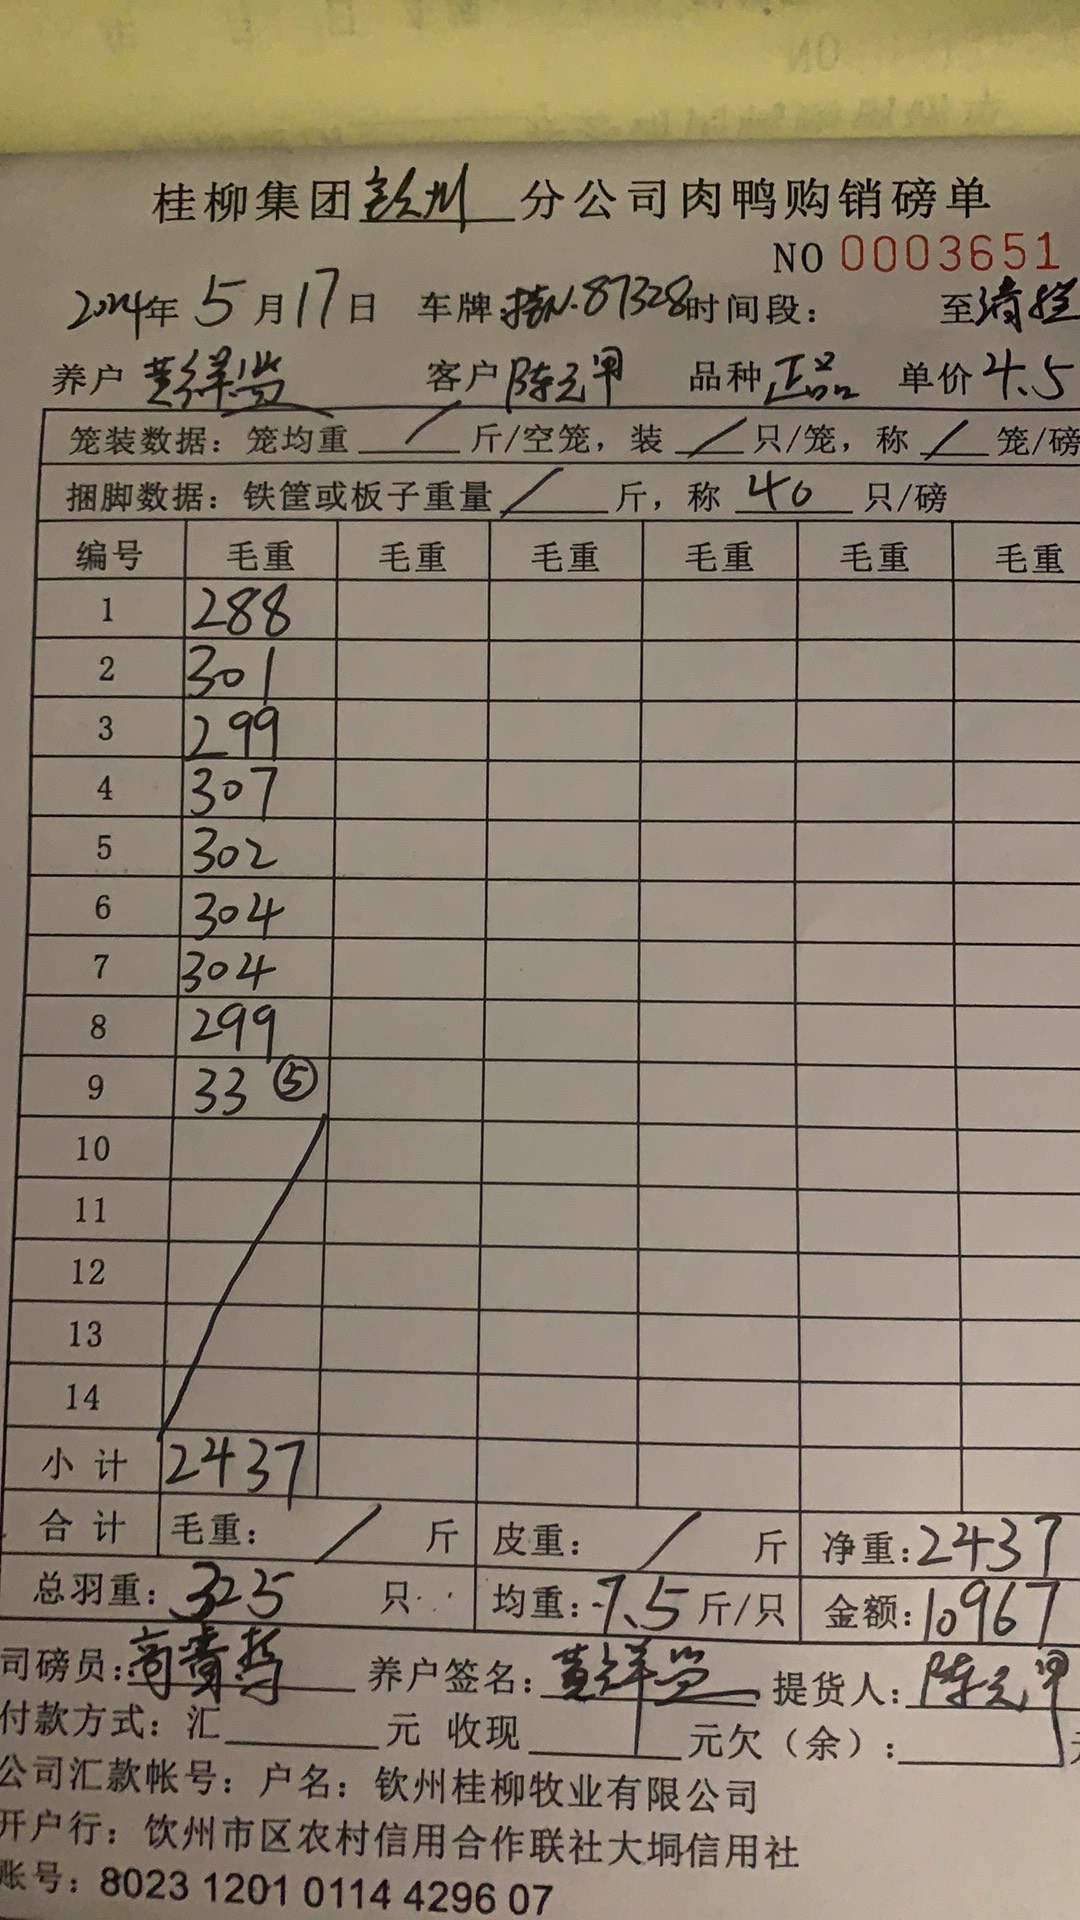 桂柳集团钦州分公司肉鸭购销磅单
NO 0003651
2024年5月17日 车牌:桂N.87328时间段: 至清栏
养户 黄祥 客户 陈元甲 品种 正品 单价4.5
笼装数据: 笼均重 / 斤/空笼, 装 / 只/笼, 称 / 笼/磅
捆脚数据: 铁筐或板子重量 / 斤, 称 40 只/磅
编号 毛重 毛重 毛重 毛重 毛重 毛重
1 288
2 301
3 299
4 307
5 302
6 304
7 304
8 299
9 33 ⑤
10
11
12
13
14
小 计 2437
合 计 毛重: / 斤 皮重: / 斤 净重:2437
总羽重: 325 只 均重:7.5斤/只 金额:10967
司磅员: 养户签名: 黄祥 提货人: 陈元甲
付款方式: 汇 元 收现 元欠(余):
公司汇款帐号: 户名: 钦州桂柳牧业有限公司
开户行: 钦州市区农村信用合作联社大垌信用社
账号: 8023 1201 0114 4296 07